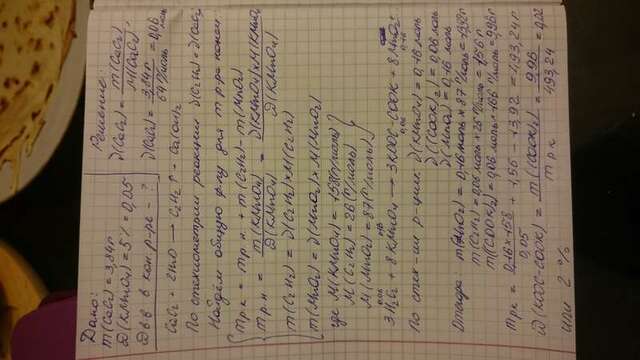 Дано:
m(CaC₂) = 3,84г
ω(KMnO₄) = 5% = 0,05
ω в-в в кон. р-ре - ?
Решение:
ν(CaC₂) = m(CaC₂) / M(CaC₂)
ν(CaC₂) = 3,84г / 64 г/моль = 0,06 моль
CaC₂ + 2H₂O → C₂H₂↑ + Ca(OH)₂
По стехиометрии реакции ν(C₂H₂) = ν(CaC₂)
Найдём общую ф-лу для m р-ра конеч.
m р.к = m р.н. + m(C₂H₂) - m(MnO₂)
m р.н = m(KMnO₄) / ω(KMnO₄) = ν(KMnO₄)×M(KMnO₄) / ω(KMnO₄)
m(C₂H₂) = ν(C₂H₂)×M(C₂H₂)
m(MnO₂) = ν(MnO₂)×M(MnO₂)
где M(KMnO₄) = 158(г/моль)
M(C₂H₂) = 26(г/моль)
M(MnO₂) = 87(г/моль)
3C₂H₂ + 8KMnO₄ → 3KOOC-COOK + 8MnO₂
По стех-ии р-ции: ν(KMnO₄) = 0,16 моль
ν((COOK)₂) = 0,06 моль
ν(MnO₂) = 0,16 моль
Отсюда: m(MnO₂) = 0,16 моль × 87 г/моль = 13,92г
m(C₂H₂) = 0,06 моль × 26 г/моль = 1,56г
m((COOK)₂) = 0,06 моль × 166 г/моль = 9,96г
m р.к = 0,16×158 / 0,05 + 1,56 - 13,92 = 493,24г
ω(KOOC-COOK) = m((COOK)₂) / m р.к = 9,96 / 493,24 = 0,02
или 2%